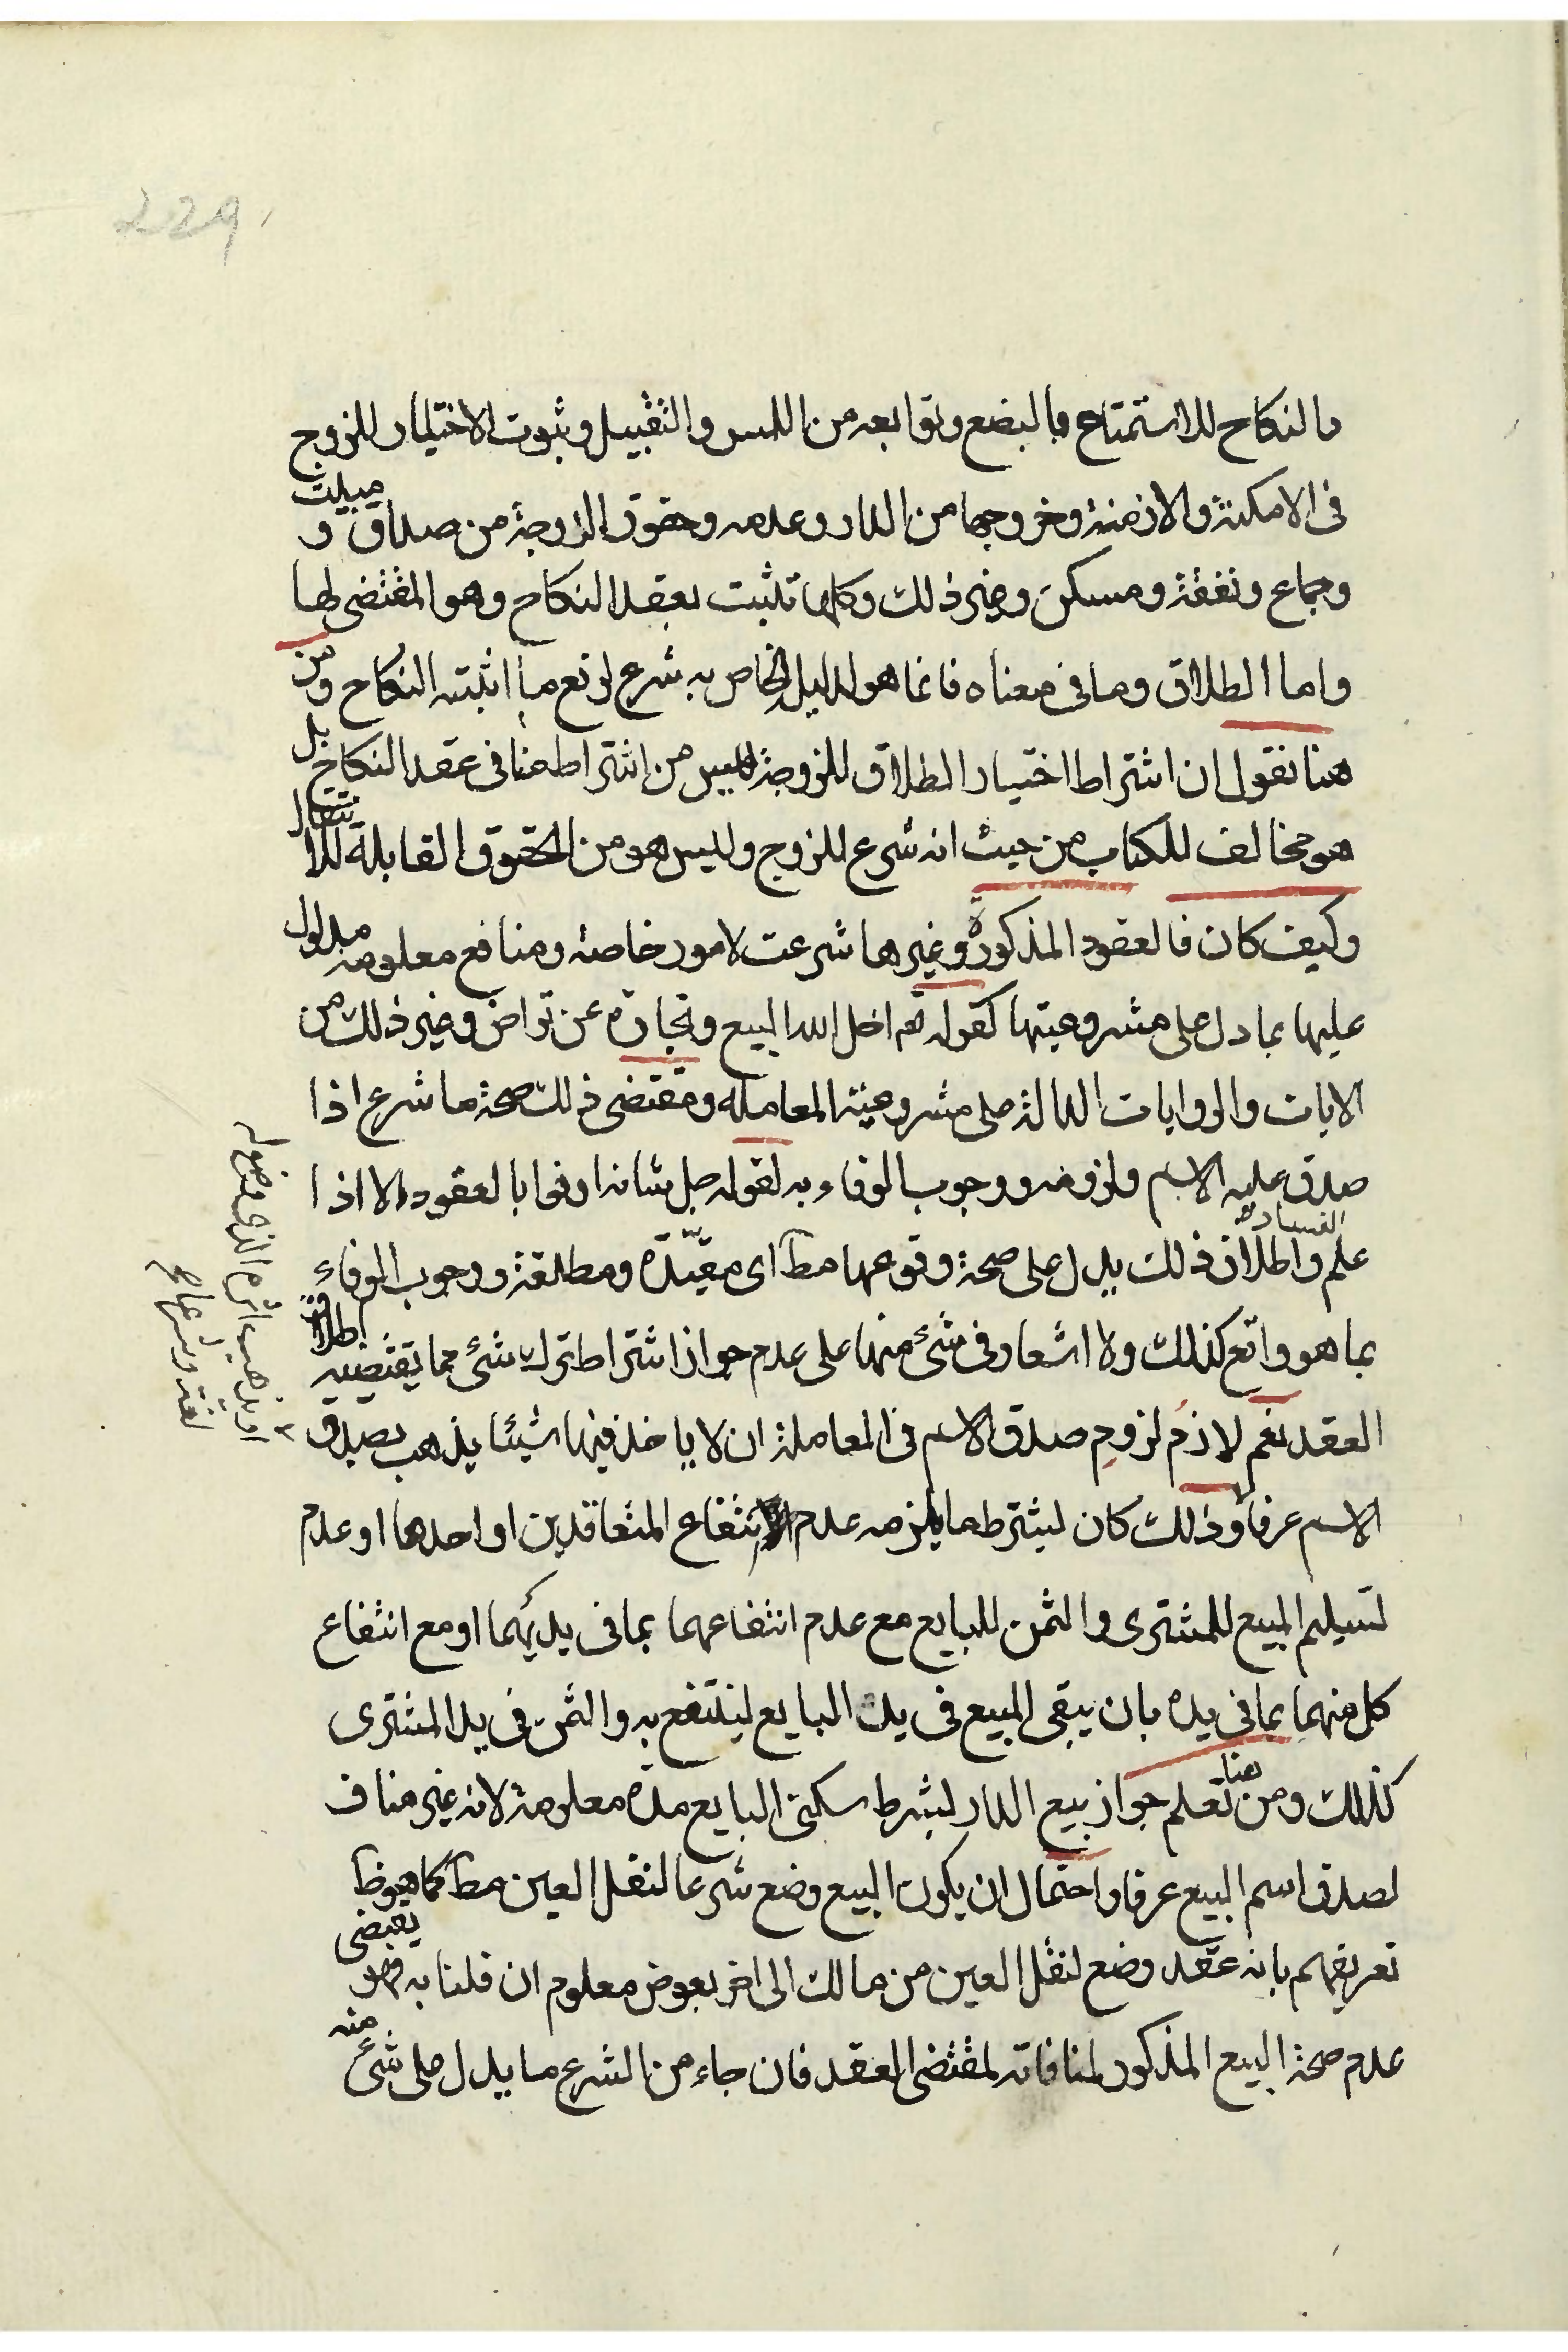 229
والنكاح للاستمتاع بالبضع وتوابعه من اللمس والتقبيل وثبوت الاختيار للزوج
فى الامكنة والازمنة وخروجها من الدار وعدمه وحقوق الزوجة من صداق و مبيت
وجماع ونفقة ومسكن وغير ذلك وكلها تثبت بعقد النكاح وهو المقتضى لها
واما الطلاق وما فى معناه فانما هو لدليل الخاص به شرع لرفع ما اثبته النكاح ومن
هنا نقول ان اشتراط اختيار الطلاق للزوجة ليس من اشتراط منافى عقد النكاح بل
هو مخالف للكتاب من حيث انه شرع للزوج وليس هو من الحقوق القابلة للانتقال
وكيف كان فالعقود المذكورة وغيرها شرعت لامور خاصة ومنافع معلومه مدلول
عليها بما دل على مشروعيتها كقوله تع احل الله البيع وتجارة عن تراض وغير ذلك من
الايات والروايات الدالة على مشروعية المعامله ومقتضى ذلك صحة ما شرع اذا
صدق عليه الاسم ولزومه ووجوب الوفاء به لقوله جل شانه اوفوا بالعقود الا اذا
علم الفساد واطلاق ذلك يدل على صحة وقوعها مط اى مقيّدة ومطلقة ووجوب الوفاء
بما هو واقع كذلك ولا اشعار فى شئ منها على عدم جواز اشتراط ترك شئ مما يقتضيه اطلاق
العقد نعم لازم لزوم صدق الاسم فى المعاملة ان لا ياخذ فيها شيئا يذهب بصدق
الاسم عرفا وذلك كان ليشترط ما يلزمه عدم انتفاع المتعاقدين او احدهما او عدم
تسيلم المبيع للمشترى والثمن للبايع مع عدم انتفاعهما بما فى يديهما او مع انتفاع
كل منهما بما فى يده بان يبقى المبيع فى يد البايع لينتفع به والثمن فى يد المشترى
كذلك ومن هنا تعلم جواز بيع الدار بشرط سكنى البايع مدة معلومة لانه غير مناف
لصدق اسم البيع عرفا واحتمال ان يكون البيع وضع شرعا لنقل العين مط كما هو ظ
تعريفهم بانه عقد وضع لنقل العين من مالك الى اخر بعوض معلوم ان قلنا به فهو يقتضى
عدم صحة البيع المذكور لمنافاته لمقتضى العقد فان جاء من الشرع ما يدل على شئ منه
او يذهب اثره الذى
لغة وشرعا